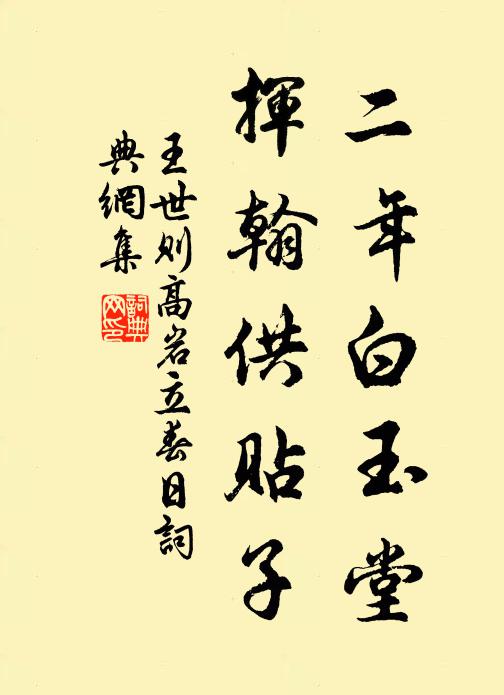 二年白玉堂
揮翰供貼子
王世則高岩立春日詞
典網集
詞典網印